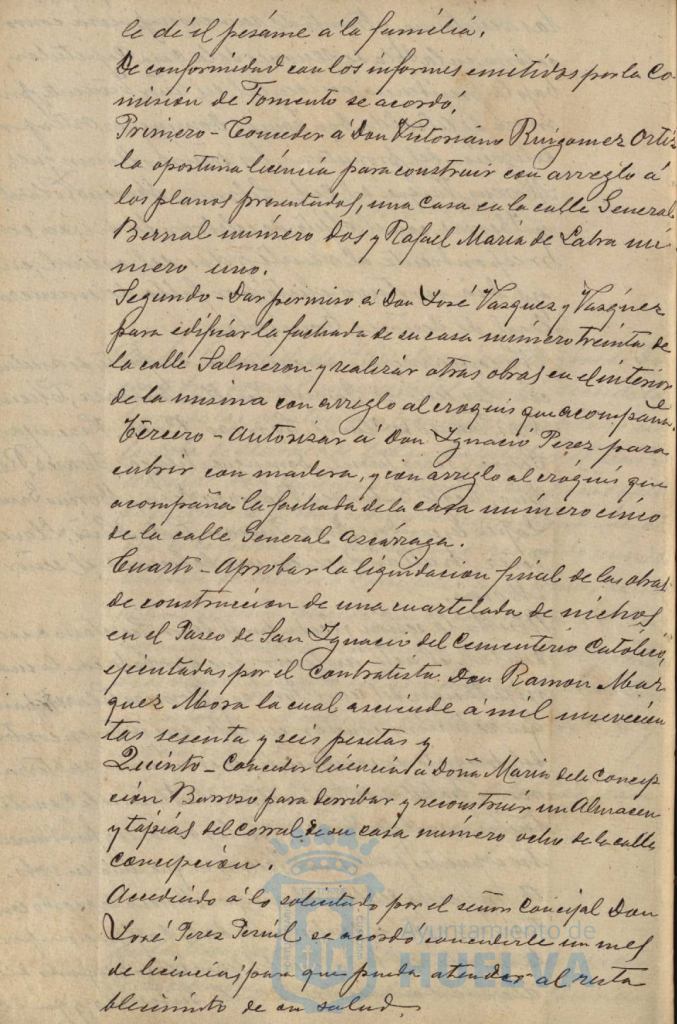 le dé el pesáme á la família.
De conformidad con los informes emitidos por la Co-
misión de Fomento se acordó.
Primero - Conceder á Don Victoriano Ruigomez Ortiz
la oportuna licéncia para construir con arreglo á
los planos presentados, una casa en la calle General
Bernal número dos y Rafael María de Labra nú-
mero uno.
Segundo - Dar permiso á Don José Vazquez y Vazquez
para edificar la fachada de su casa número treinta de
la calle Salmeron y realizar otras obras en el interior
de la misma con arreglo al croquis que acompaña.
Tércero - Autorizar á Don Ignacio Perez para
cubrir con madera, y con arreglo al cróquis que
acompaña la fachada de la casa número cinco
de la calle General Azcárraga.
Cuarto - Aprobar la liquidacion final de las obras
de construccion de una cuartelada de nichos
en el Paseo de San Ignacio del Cementerio Católico,
ejecutadas por el contratista Don Ramon Mar-
quez Mora la cual asciende á mil novecien
tas sesenta y seis pesetas y
Quinto - Conceder licencia á Doña Maria de la Concep
ción Barroso para derribar y reconstruir un Almacen
y tapias del corral de su casa número ocho de la calle
Concepción.
Accediendo á lo solicitado por el señor Concejal Don
José Perez se acordó concederle un mes
de licencia, para que pueda atender al resta
blecimiento de su salud.
Ayuntamiento de
HUELVA